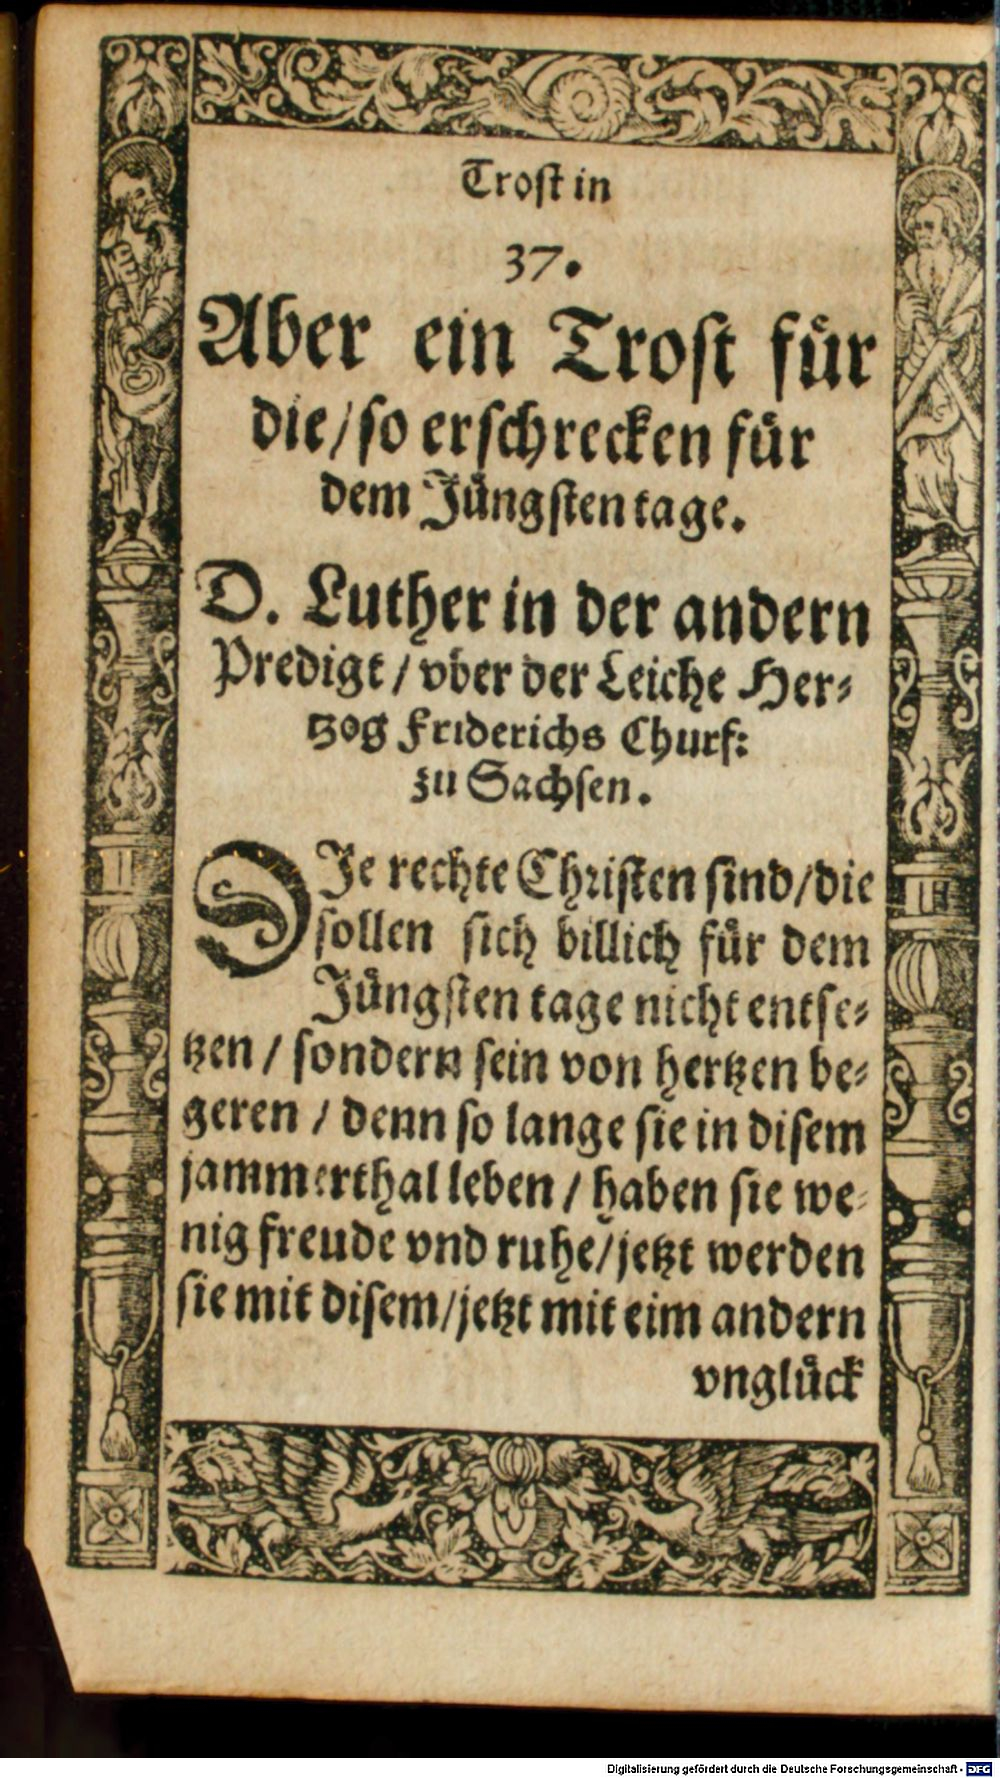 Trost in
37.
Aber ein Trost fuͤr
die/ so erschrecken fuͤr
dem Juͤngsten tage.
D. Luther in der andern
Predigt / vber der Leiche Her-
tzog Friderichs Churf:
zu Sachsen.
DJe rechte Christen sind/ die
sollen sich billich fuͤr dem
Juͤngsten tage nicht entse-
tzen / sondern sein von hertzen be-
geren / denn so lange sie in disem
jammerthal leben / haben sie we-
nig freude vnd ruhe/ jetzt werden
sie mit disem/ jetzt mit eim andern
vngluͤck
Digitalisierung gefördert durch die Deutsche Forschungsgemeinschaft - DFG